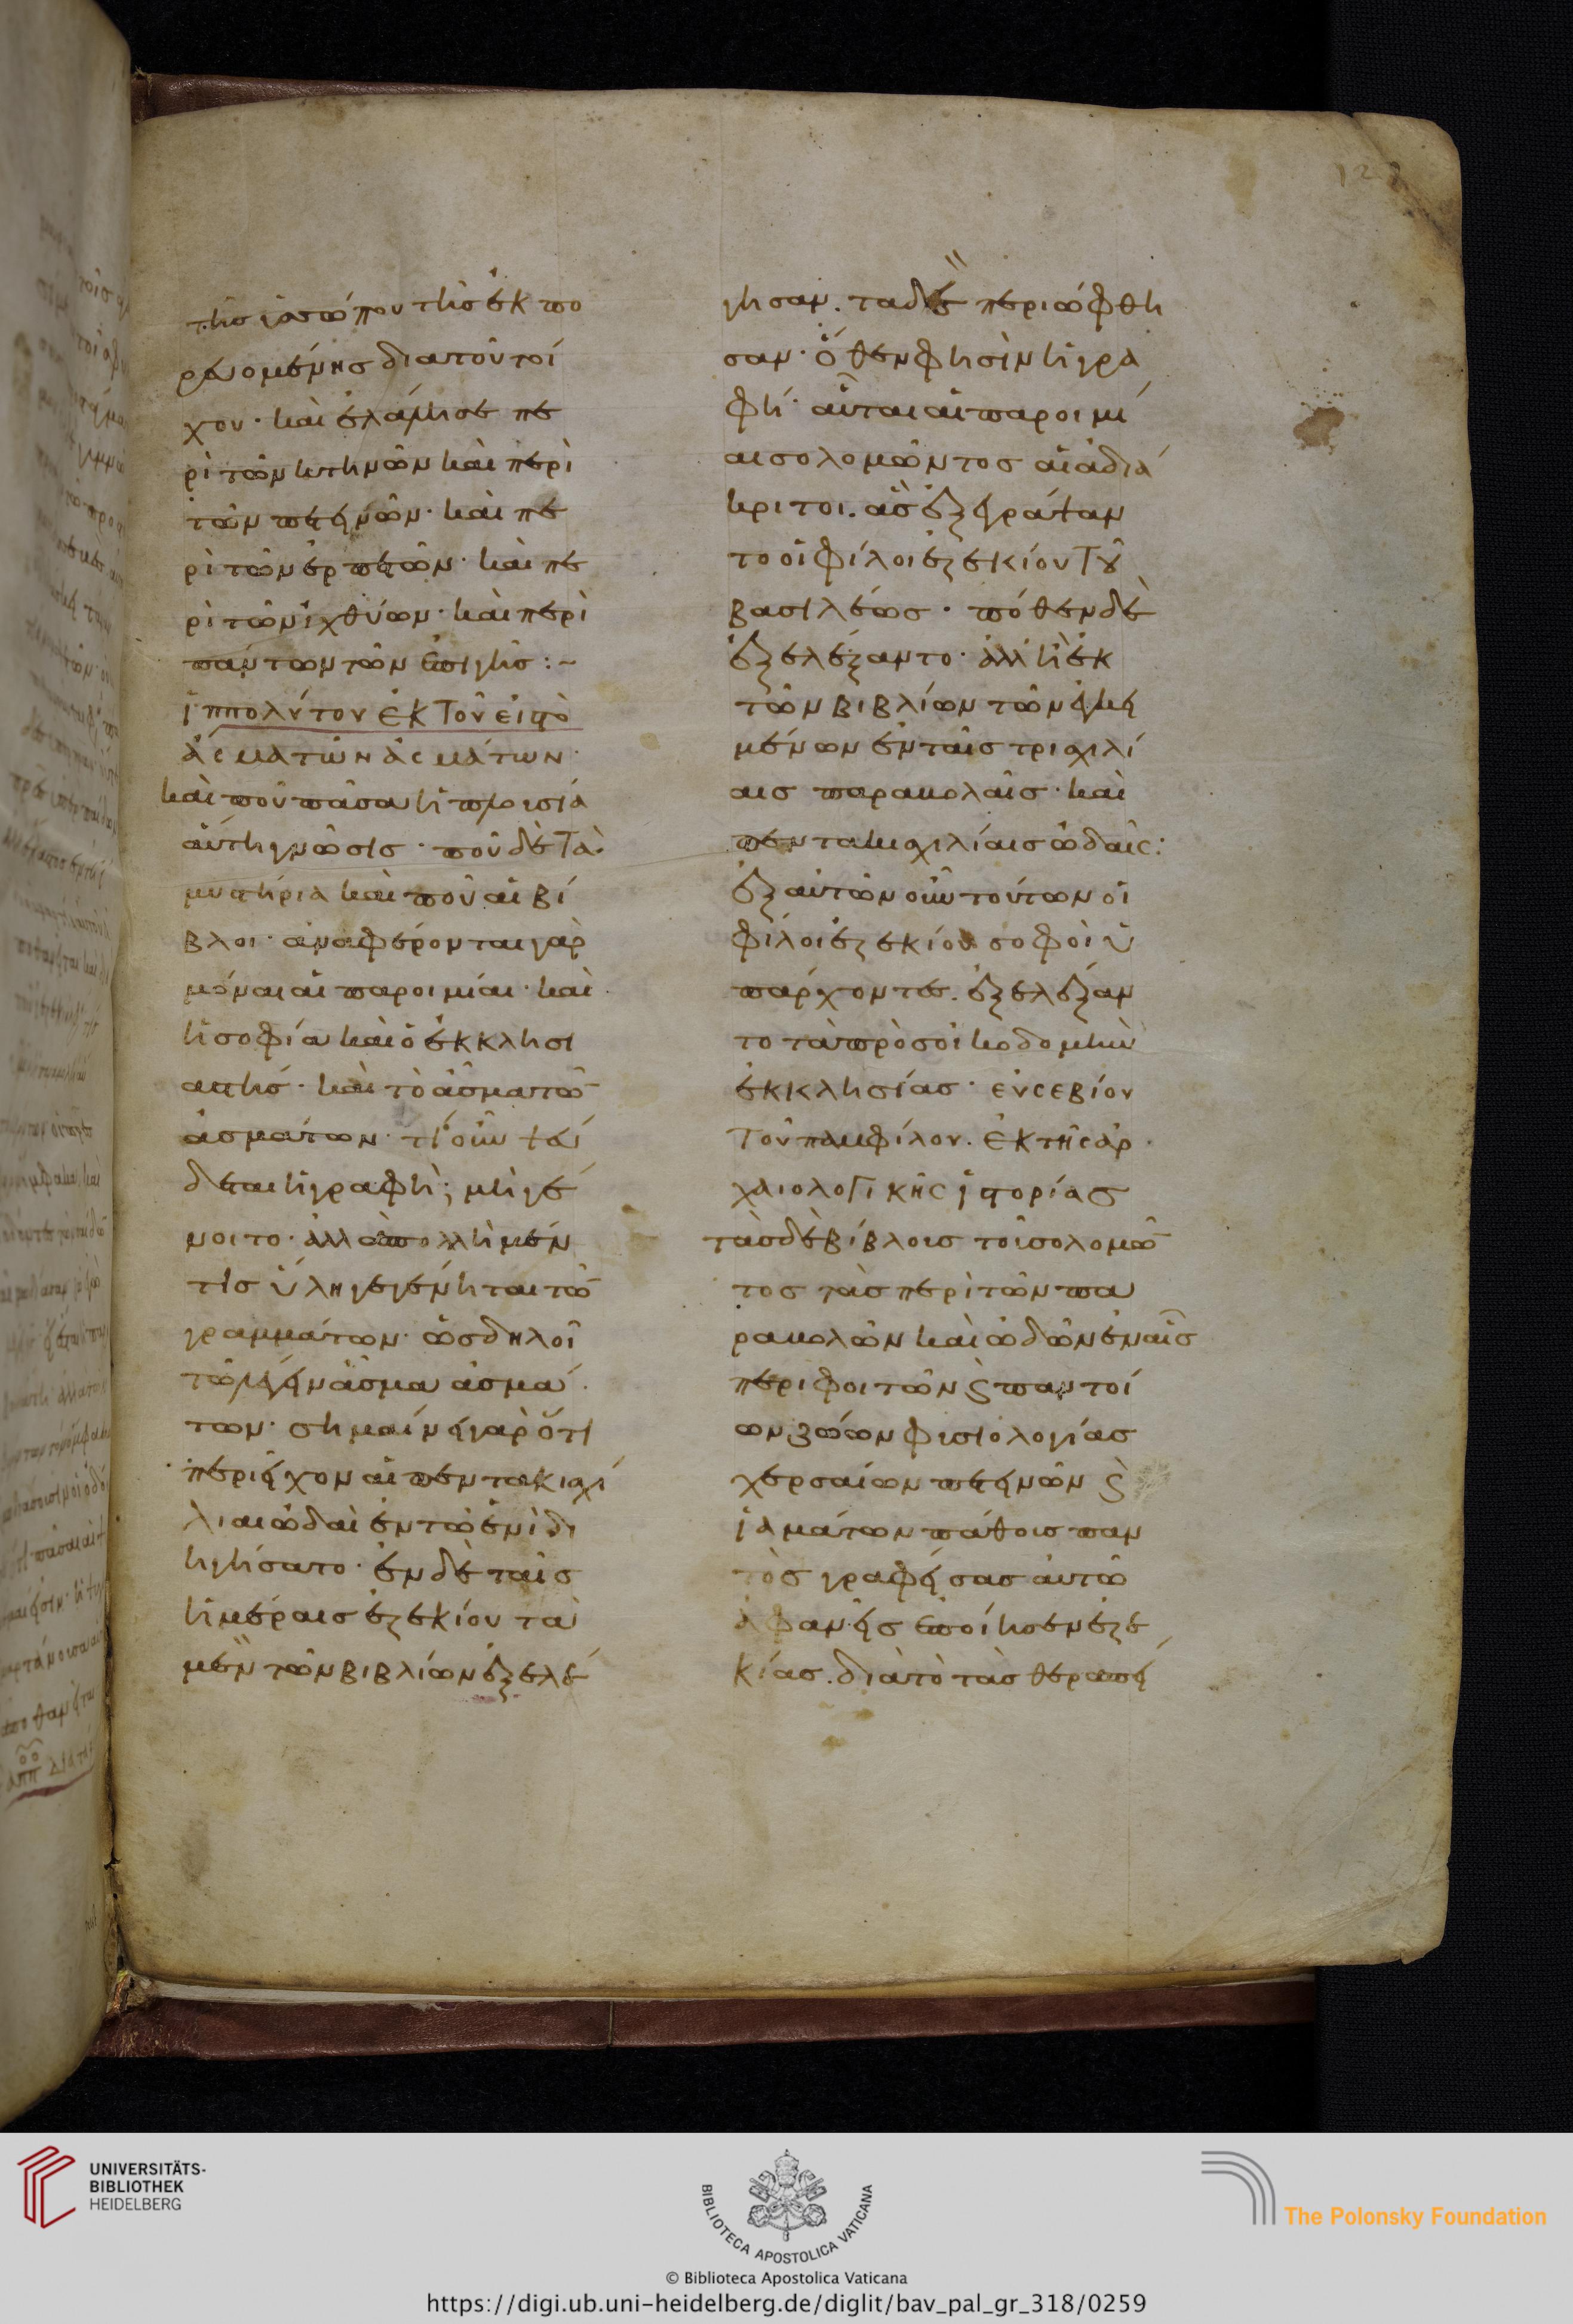 128
τῆς ὑσσώπου τῆς ἐκ πο
ρευομένης διὰ τοῦ τοί
χου· καὶ ἐλάλησε πε
ρὶ τῶν κτηνῶν καὶ περὶ
τῶν πετεινῶν· καὶ πε
ρὶ τῶν ἑρπετῶν· καὶ πε
ρὶ τῶν ἰχθύων· καὶ περὶ
πάντων τῶν ἐπὶ γῆς :~
ἱππολύτου ἐκ τοῦ εἰς τὸ
ἆσμα τῶν ἀσμάτων·
καὶ ποῦ πᾶσα ἡ πλουσία
αὕτη γνῶσις· ποῦ δὲ τὰ
μυστήρια καὶ ποῦ αἱ βί
βλοι· ἀναφέρονται γὰρ
μόναι αἱ παροιμίαι· καὶ
ἡ σοφία καὶ ὁ ἐκκλησι
αστής· καὶ τὸ ἆσμα τῶ̅
ἀσμάτων· τί οὖν ψεύ
δεται ἡ γραφή; μὴ γέ
νοιτο· ἀλλὰ πολλὴ μέν
τις ὕλη γεγένηται τῶ̅
γραμμάτων· ὡς δηλοῖ
τὸ λέγειν ἆσμα ἀσμά
των· σημαίνει γὰρ ὅτι
περιεῖχον αἱ πεντακισχί
λιαι ὠδαὶ ἐν τῷ ἑνὶ δι
ηγήσατο· ἐν δὲ ταῖς
ἡμέραις ἐζεκίου τὰ
μὲν τῶν βιβλίων ἐξελέ
γησαν. τὰ δὲ περιώφθη
σαν· ὅθεν φησὶν ἡ γρα
φή· αὗται αἱ παροιμί
αι σολομῶντος αἱ ἀδιά
κριτοι. ἃς ἐξεγράψαν
το οἱ φίλοι ἐζεκίου τοῦ
βασιλέως· πόθεν δὲ
ἐξελέξαντο· ἀλλ' ἢ ἐκ
τῶν βιβλίων τῶν εἰρη
μένων ἐν ταῖς τρισχιλί
αις παραβολαῖς· καὶ
πεντακισχιλίαις ὠδαῖς:
ἐξ αὐτῶν οὖν τούτων οἱ
φίλοι ἐζεκίου σοφοὶ ὑ
πάρχοντες. ἐξελέξαν
το τὰ πρὸς οἰκοδομὴν
ἐκκλησίας· εὐσεβίου
τοῦ παμφίλου. ἐκ τῆς ἀρ
χαιολογικῆς ἱστορίας
τὰς δὲ βίβλους τοῦ σολομῶ̅
τος τὰς περὶ τῶν πα
ραβολῶν καὶ ὠδῶν ἐν αἷς
περὶ φυτῶν ϛ παντοί
ων ζώων φυσιολογίας
χερσαίων πετεινῶν ϛ
ἰαμάτων πάθους παν
τὸς γραφείσας αὐτῶ
ἀφανεῖς ἐποίησεν ἐζε
κίας. διὰ τὸ τὰς θεραπεί
UNIVERSITÄTS-
BIBLIOTHEK
HEIDELBERG
BIBLIOTECA APOSTOLICA VATICANA
The Polonsky Foundation
© Biblioteca Apostolica Vaticana
https://digi.ub.uni-heidelberg.de/diglit/bav_pal_gr_318/0259